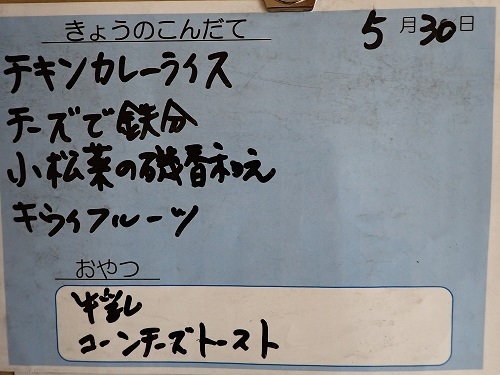 きょうのこんだて 5月30日
チキンカレーライス
チーズで鉄分
小松菜の磯香和え
キウイフルーツ
おやつ
牛乳
コーンチーズトースト